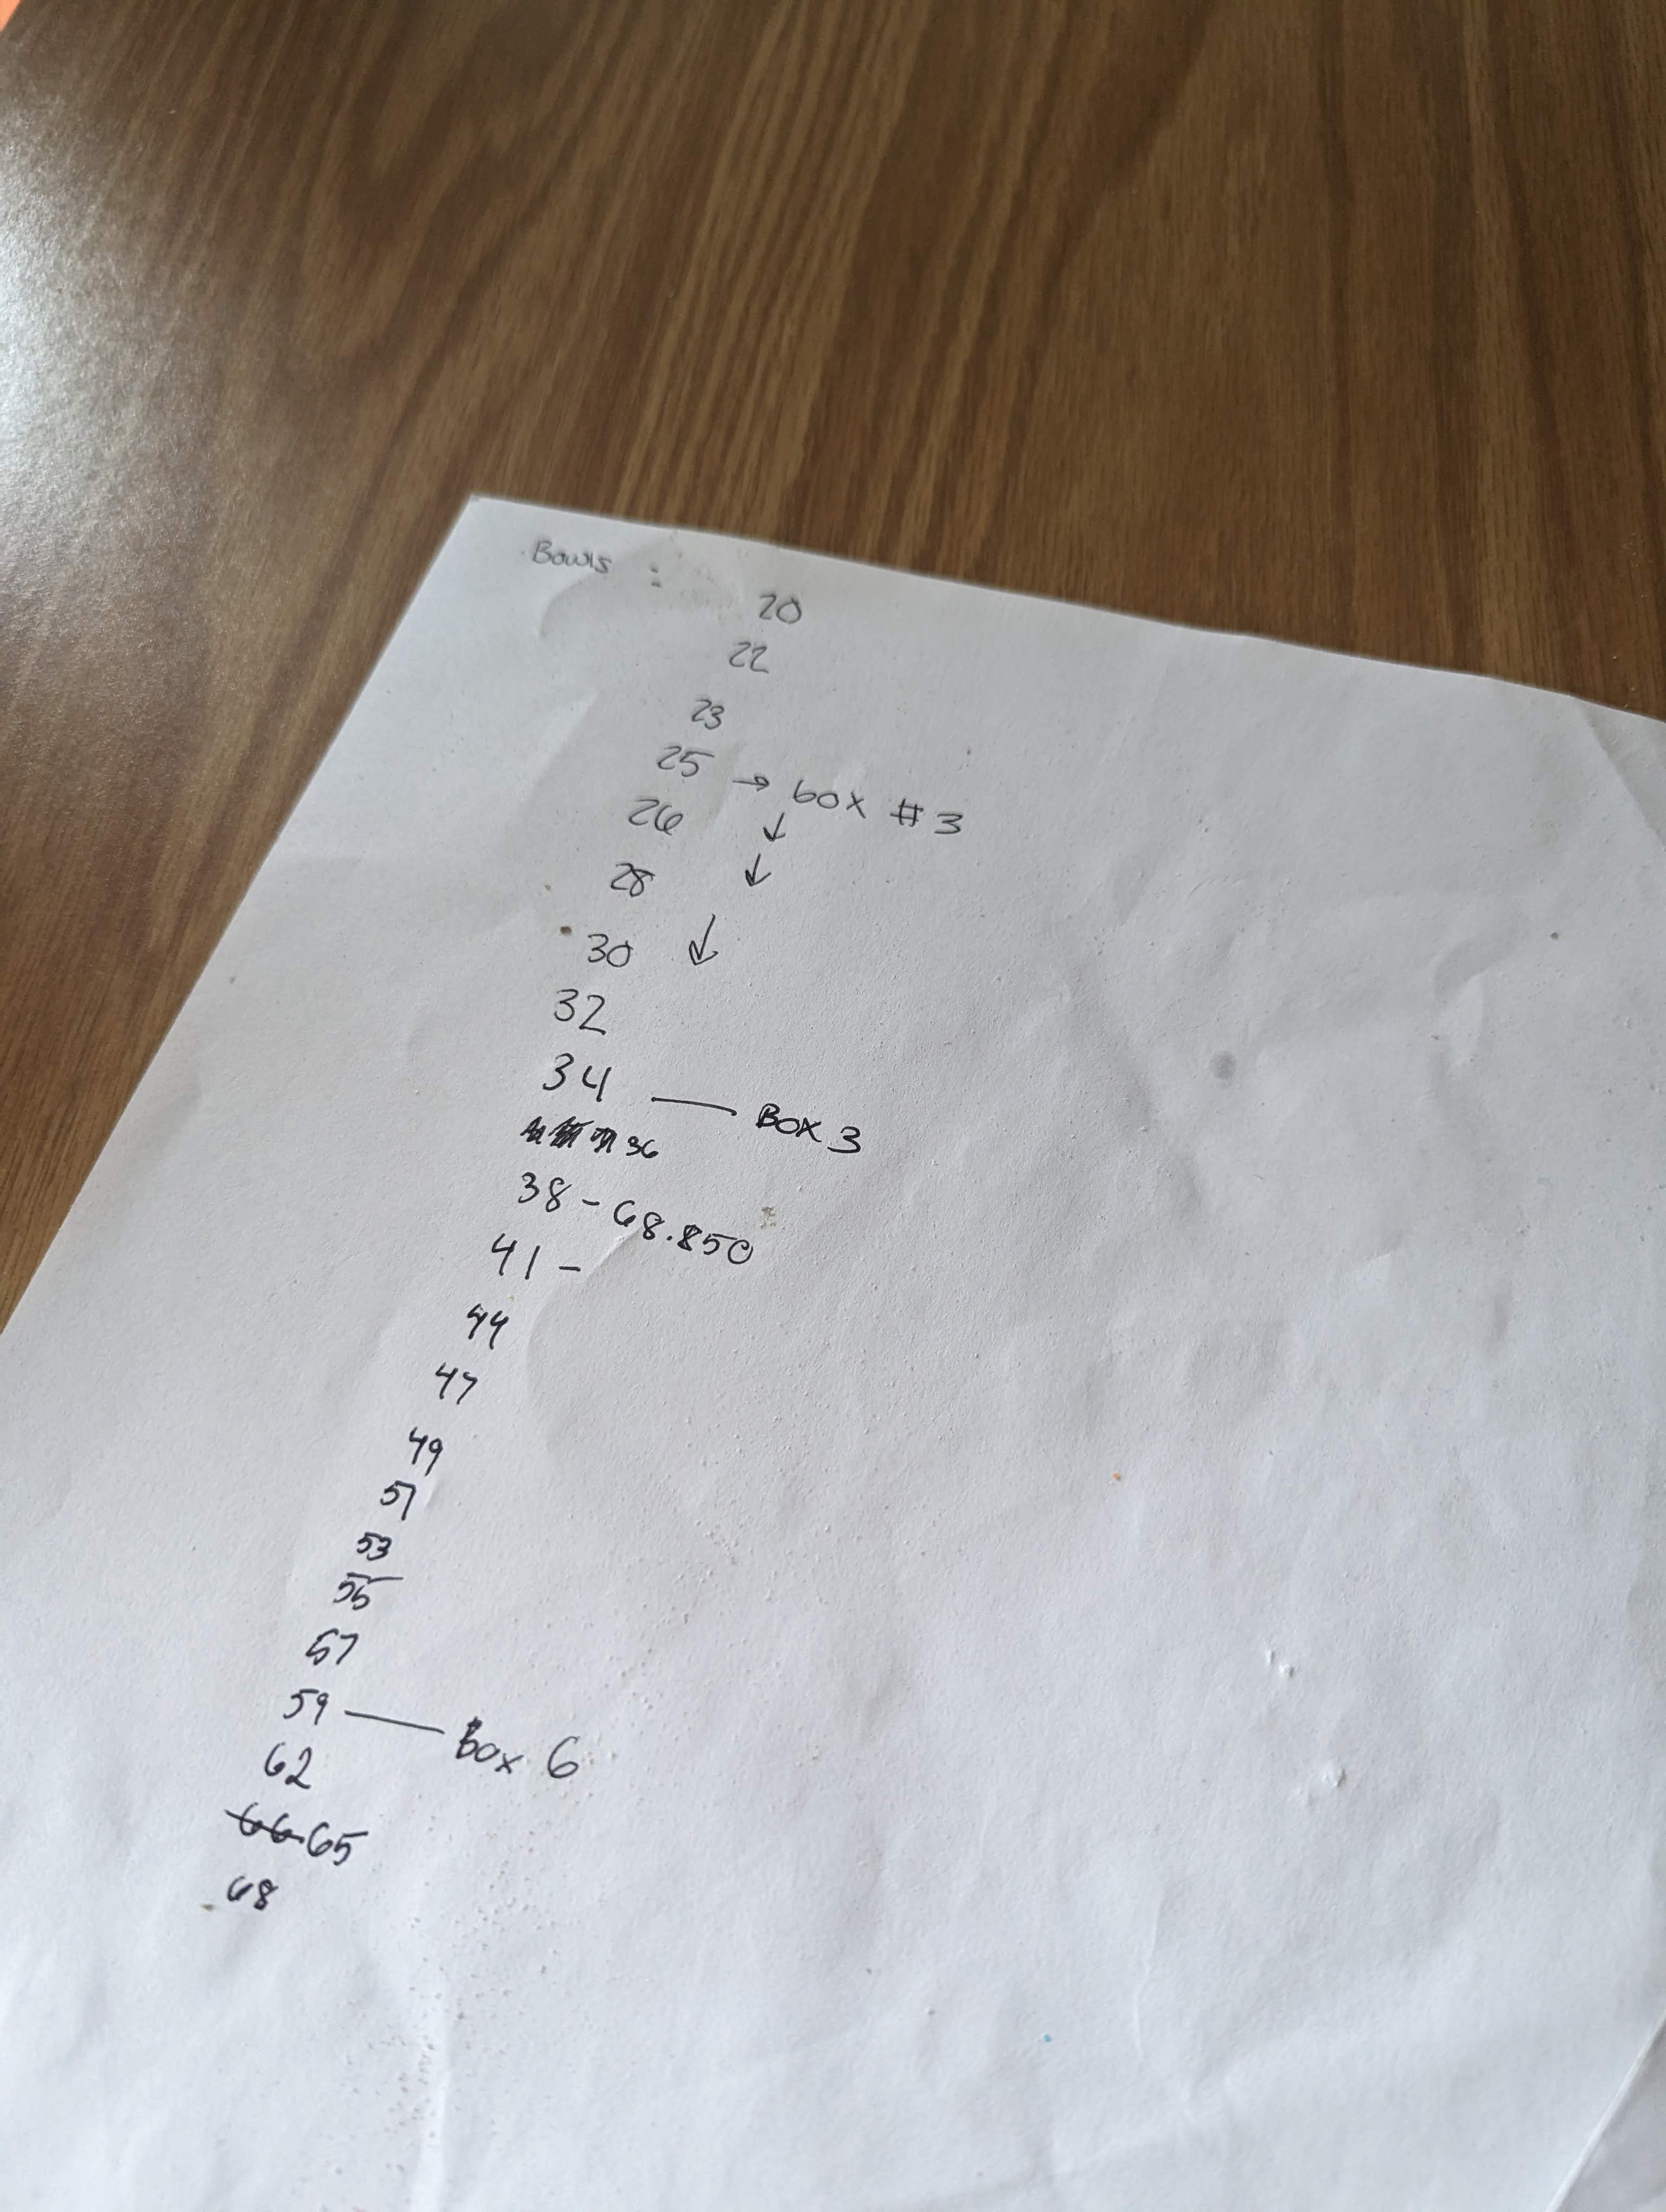 Bowls :
20
22
23
25 → box #3
26 ↓
28 ↓
30 ↓
32
34 — Box 3
36
38 - 68.850
41 -
44
47
49
51
53
55
57
59 — Box 6
62
66 65
68